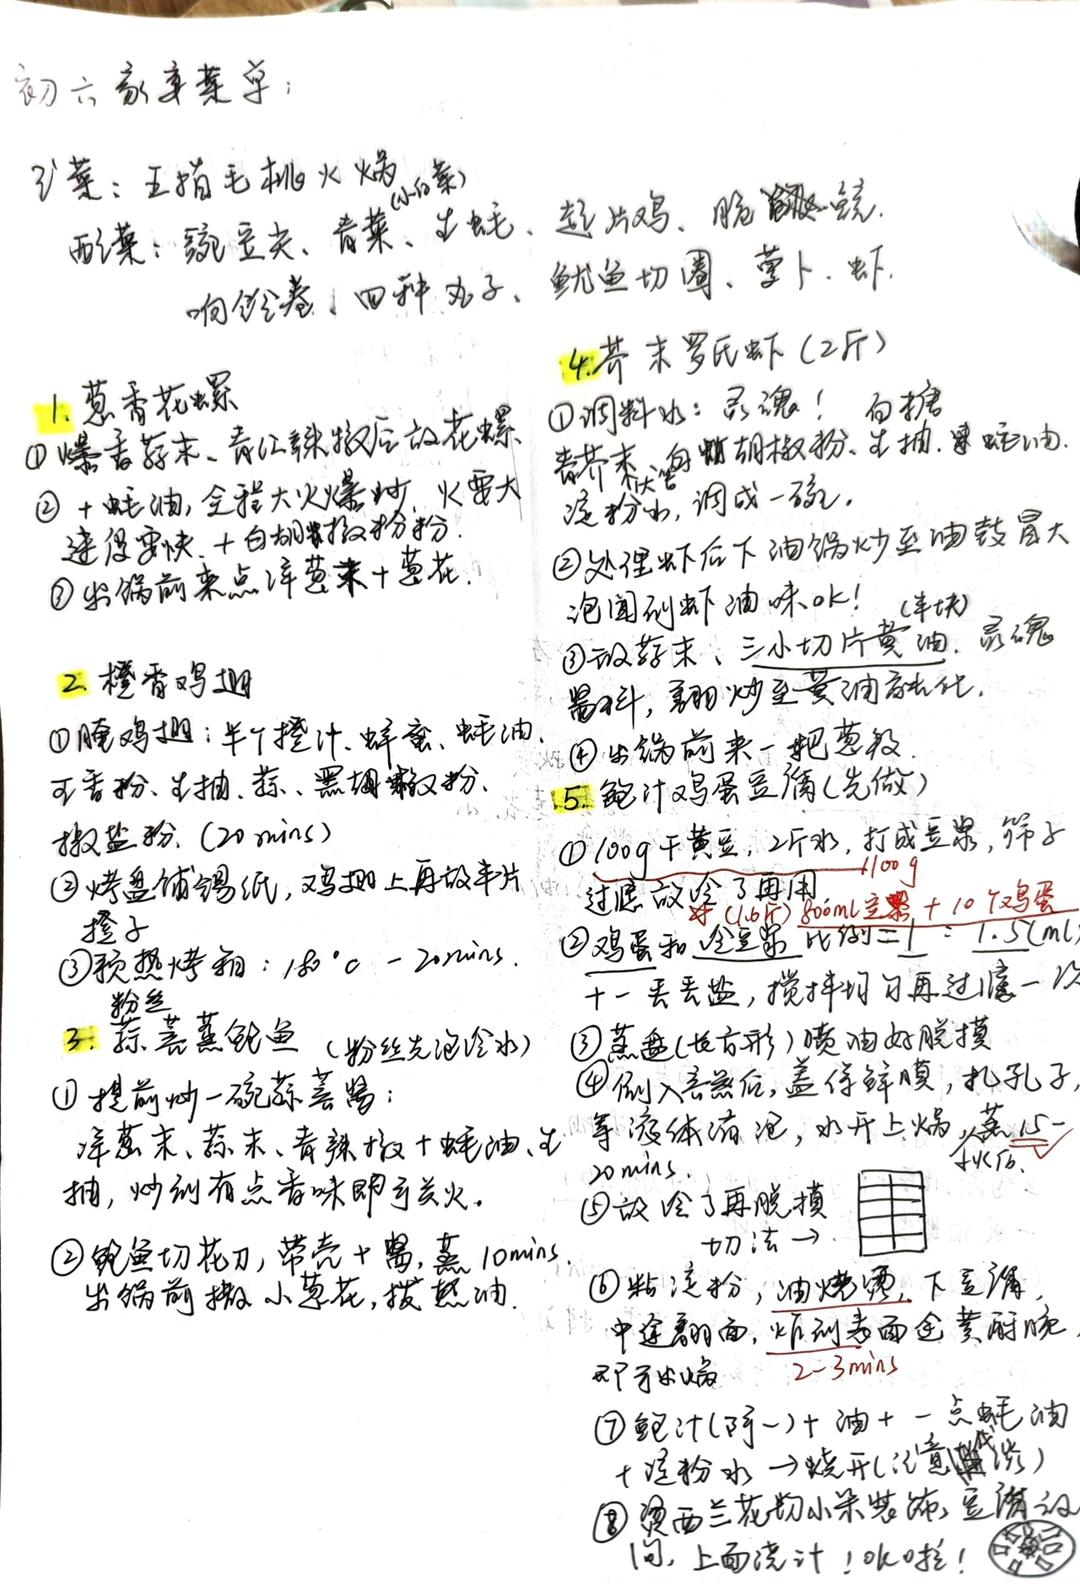 初六家宴菜单：
主菜：五指毛桃火锅
(小白菜)
配菜：豌豆尖、青菜、生蚝、起片鸡、脆鲩
响铃卷、四种丸子、鱿鱼切圈、萝卜、虾.
1. 葱香花螺
①爆香蒜末、青红辣椒后放花螺
②+蚝油,全程大火爆炒,火要大
速度要快.+白胡椒粉粉.
③出锅前来点洋葱末+葱花.
2. 橙香鸡翅
①腌鸡翅：半个橙汁、蜂蜜、蚝油、
五香粉、生抽、蒜、黑胡椒粉、
椒盐粉.(20mins)
②烤盘铺锡纸,鸡翅上再放半片
橙子
③预热烤箱：180°c-20mins.
粉丝
3. 蒜蓉蒸鲍鱼 (粉丝先泡冷水)
①提前炒一碗蒜蓉酱：
洋葱末、蒜末、青辣椒+蚝油、生
抽,炒到有点香味即可关火。
②鲍鱼切花刀,带壳+酱,蒸10mins.
出锅前撒小葱花,拨热油.
4. 芥末罗氏虾(2斤)
①调料水：灵魂！白糖
青芥末、白胡椒粉、生抽.蚝油.
淀粉水,调成一碗。
②处理虾后下油锅炒至油鼓冒大
泡闻到虾油味OK!
(半块)
③放蒜末、三小切片黄油.灵魂
酱料,翻炒至黄油融化.
④出锅前来一把葱段.
5. 鲍汁鸡蛋豆腐(先做)
①100g干黄豆,2斤水,打成豆浆,筛子
1100g
过滤放冷了再用
(1.6斤)800ml豆浆+10个鸡蛋
②鸡蛋和冷豆浆 比例=1：1.5(ml)
十一丢丢盐,搅拌均匀再过滤一次
③蒸盘(长方形)喷油好脱摸
④倒入蒸后,盖保鲜膜,扎孔子,
等液体消泡,水开上锅,蒸15-
20mins.
⑤放冷了再脱摸
切法→
⑥粘淀粉,油烧烫,下豆腐,
中途翻面,炸到表面金黄酥脆,
即可出锅
2-3mins
⑦鲍汁(阿一)+油+一点蚝油
+淀粉水→烧开(注意浓淡)
⑧烫西兰花切小朵装饰,豆腐放
间,上面浇汁！OK啦！